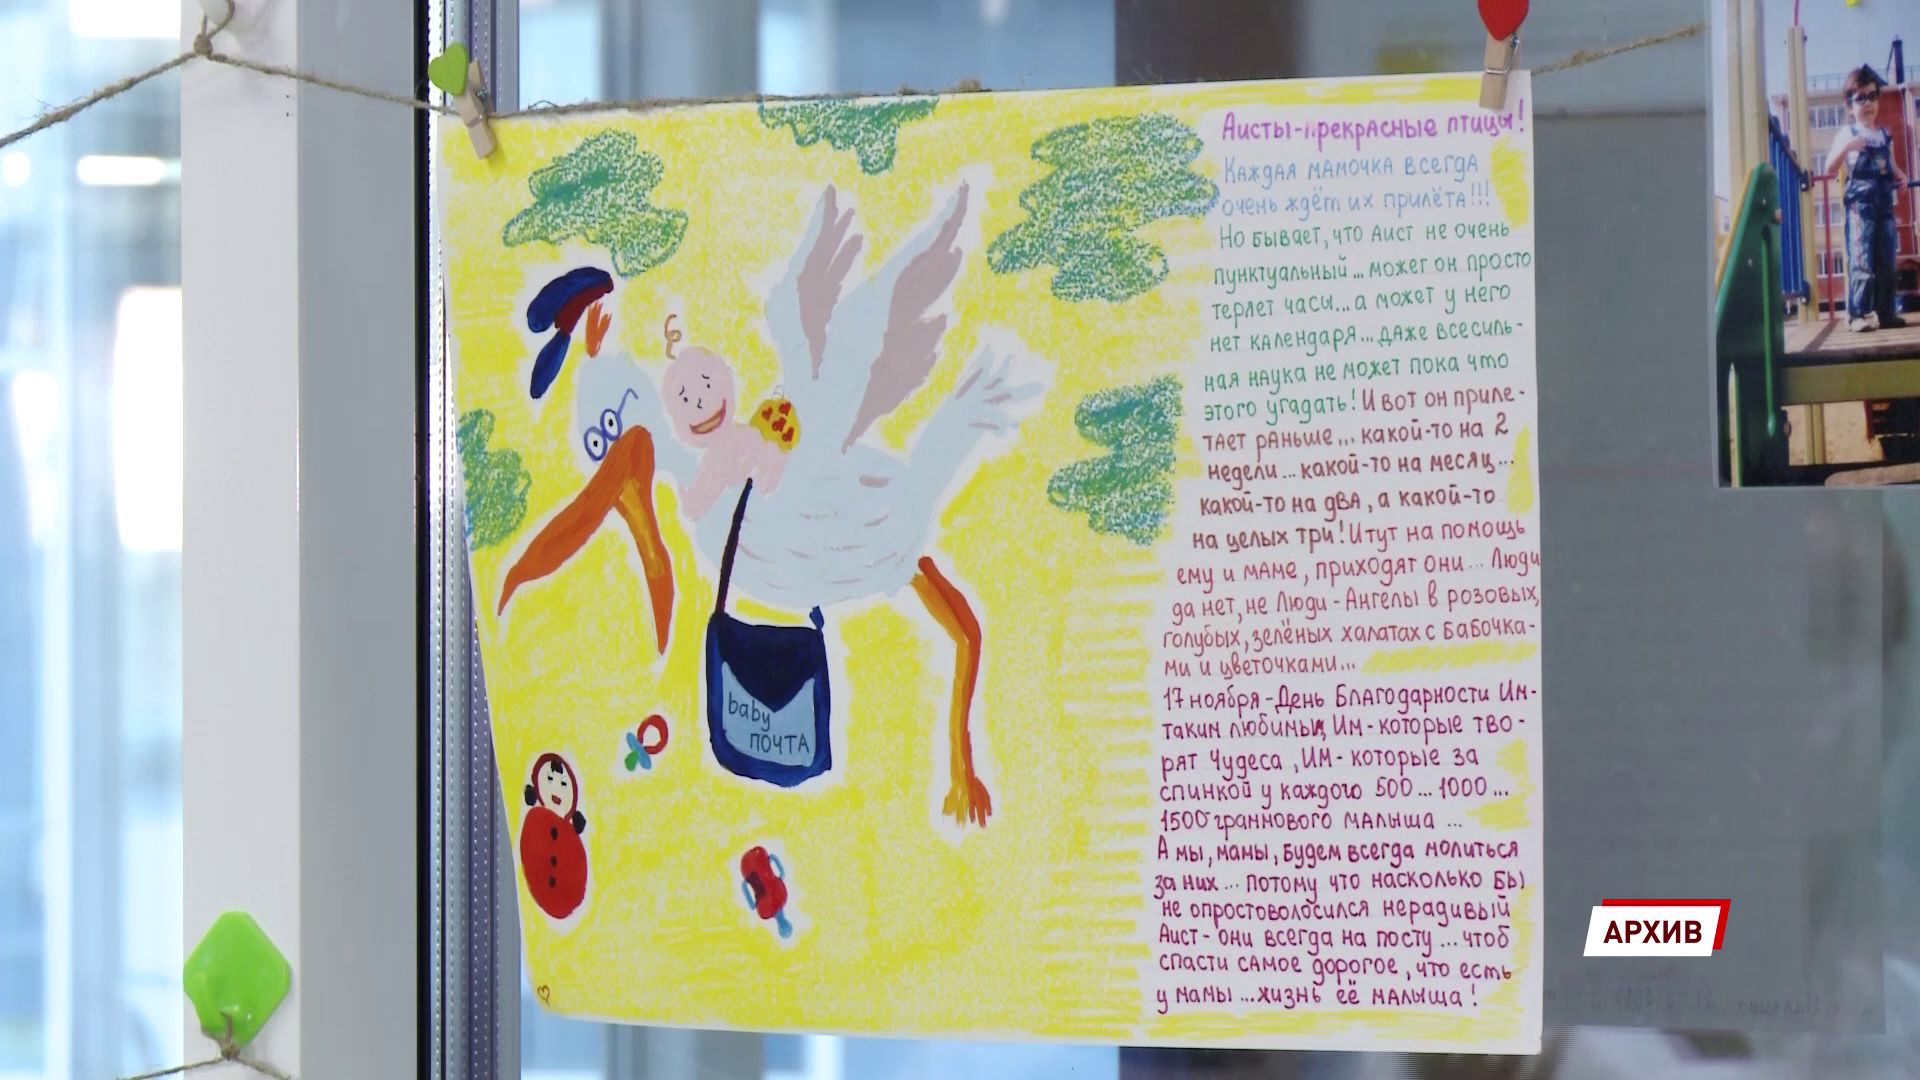 Аисты-прекрасные птицы!
Каждая мамочка всегда
очень ждёт их прилёта!!!
Но бывает, что Аист не очень
пунктуальный... может он просто
теряет часы... а может у него
нет календаря... даже всесиль-
ная наука не может пока что
этого угадать! И вот он приле-
тает раньше... какой-то на 2
недели... какой-то на месяц...
какой-то на два, а какой-то
на целых три! И тут на помощь
ему и маме, приходят они... Люди
да нет, не Люди - Ангелы в розовых,
голубых, зелёных халатах с бабочка-
ми и цветочками...
17 ноября - День Благодарности Им-
таким любимым, Им - которые тво-
рят Чудеса, ИМ - которые за
спинкой у каждого 500... 1000...
1500 граммового малыша...
А мы, мамы, будем всегда молиться
за них... потому что насколько бы
не опростоволосился нерадивый
Аист - они всегда на посту... чтоб
спасти самое дорогое, что есть
у мамы... жизнь её малыша!
baby
почта
АРХИВ